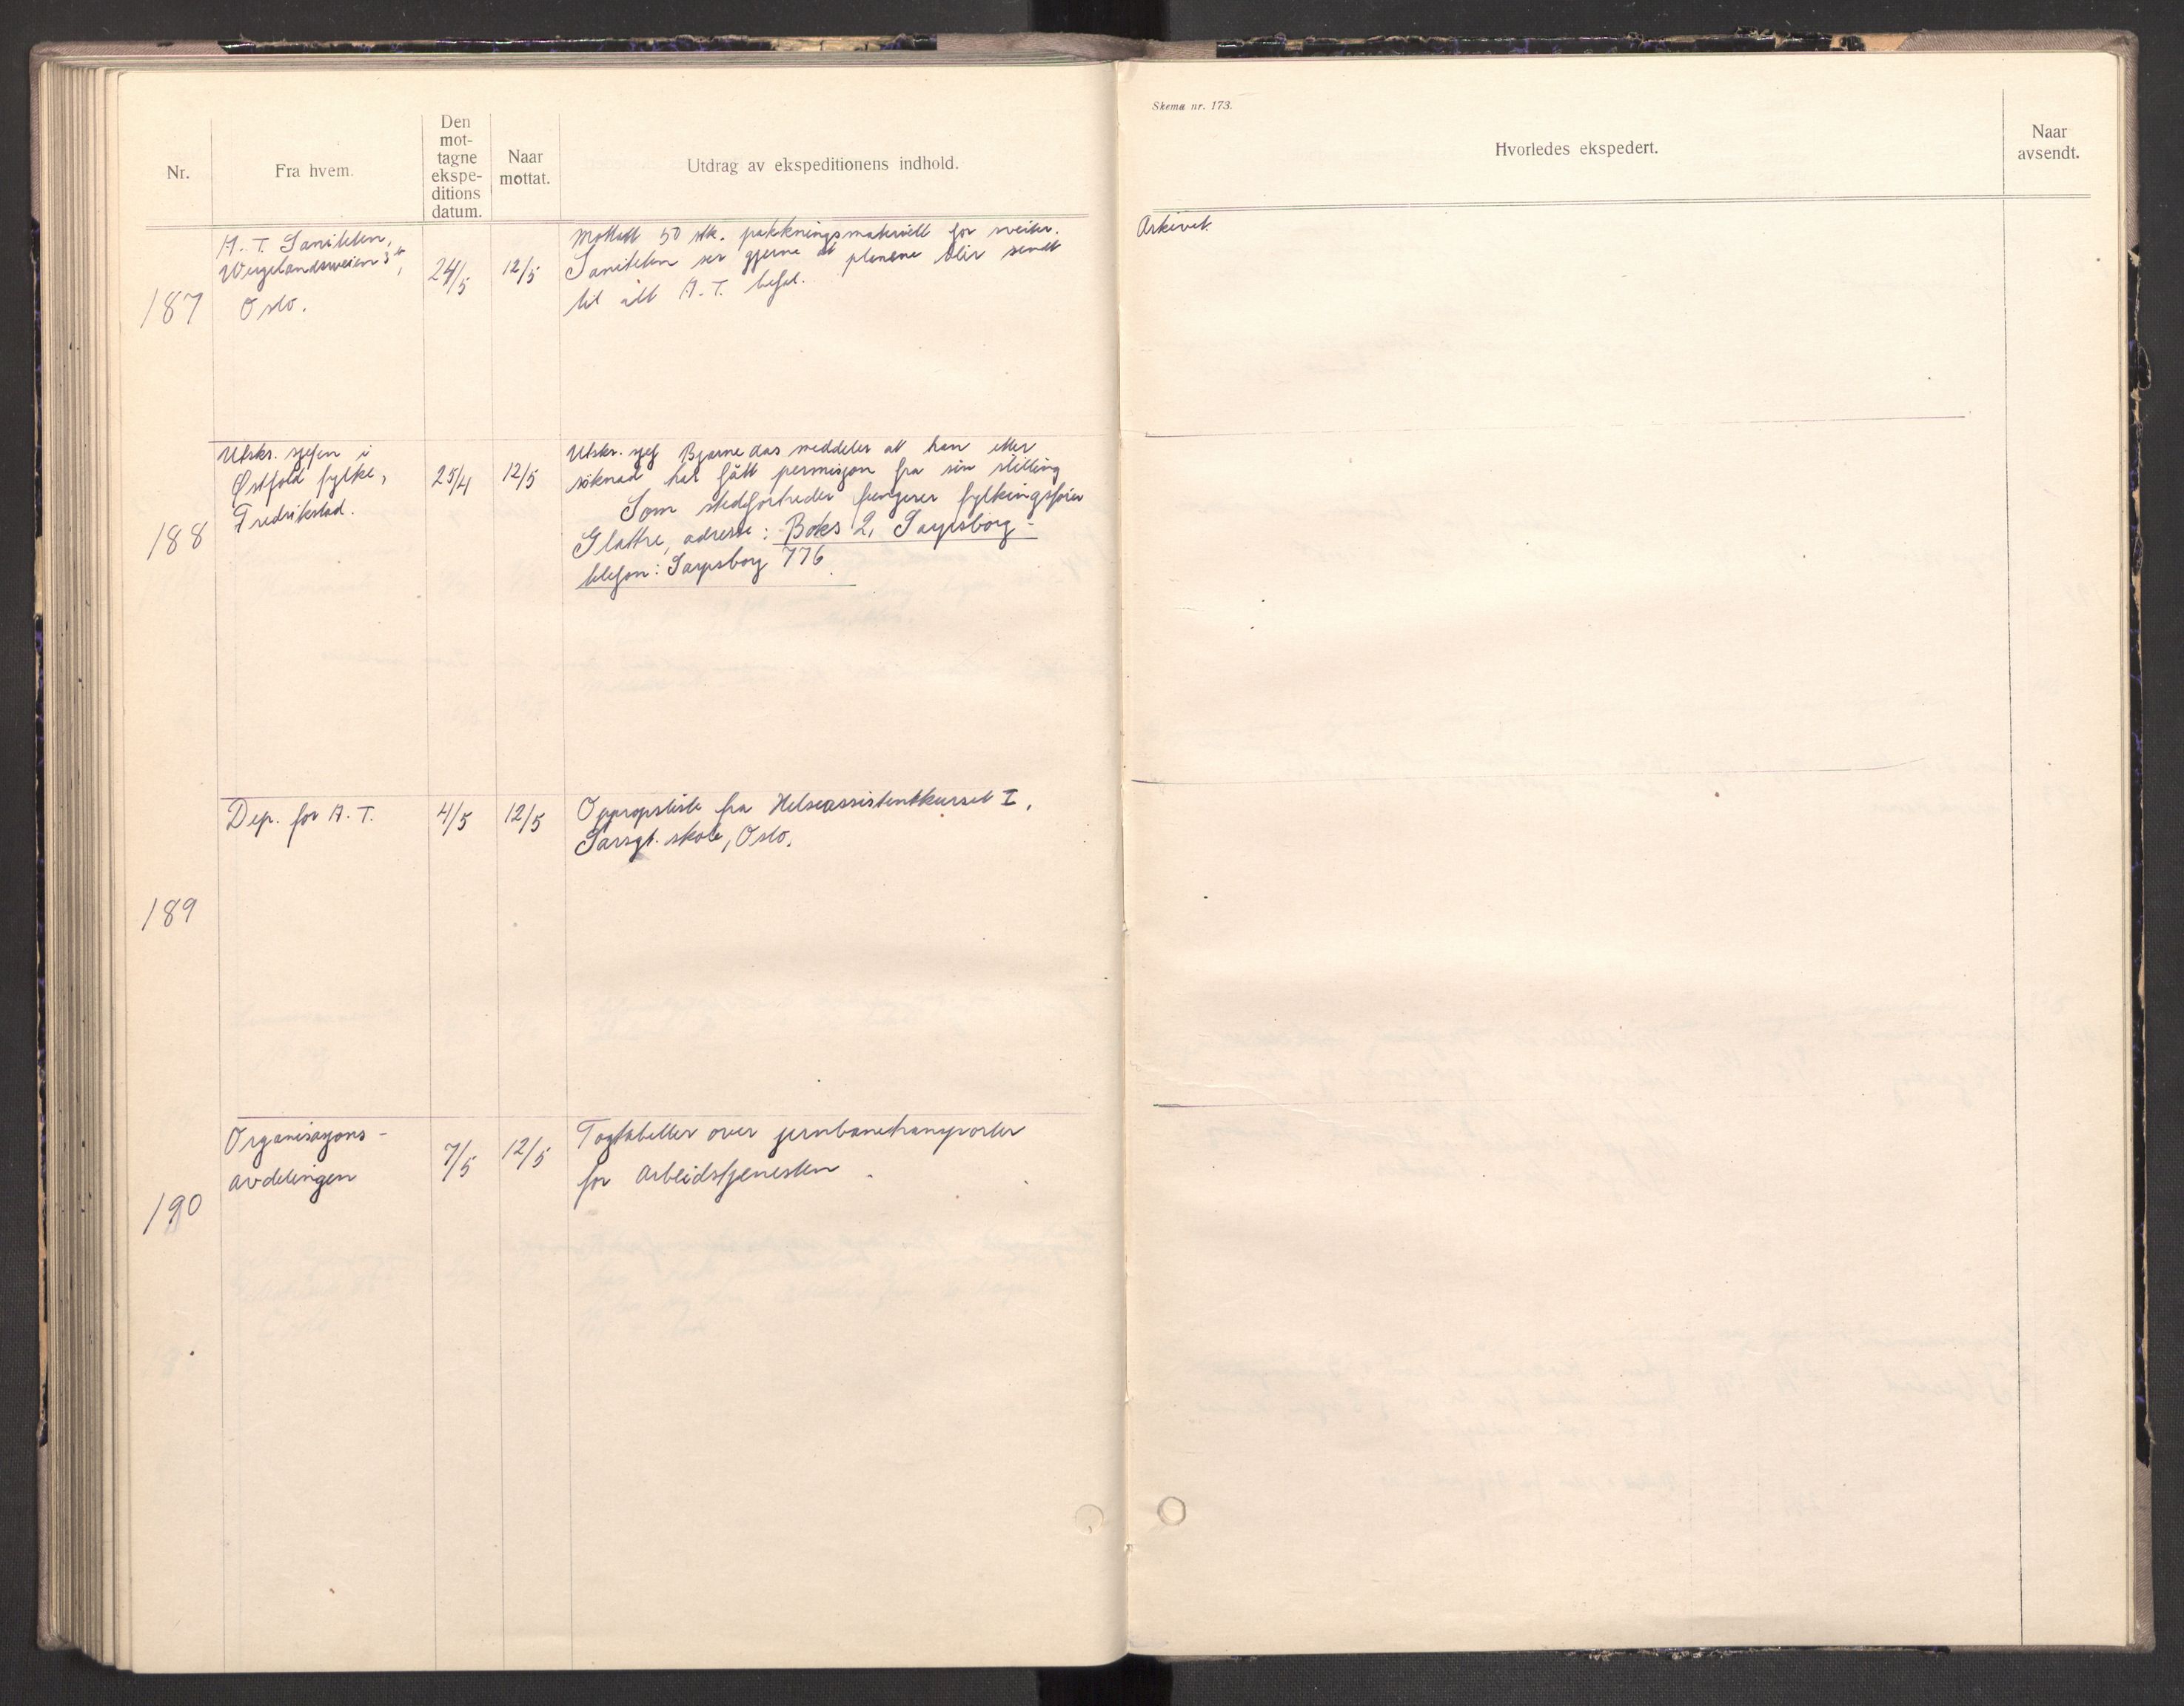 Skema nr. 173.
Nr.
Fra hvem.
Den
mot-
tagne
ekspe-
ditions
datum.
Naar
mottat.
Utdrag av ekspeditionens indhold.
Hvorledes ekspedert.
Naar
avsendt.
187
A. T. Saniteten,
Wergelandsveien 3
Oslo.
24/5
12/5
Mottatt 50 stk. pakkningsmateriell for
Saniteten ser gjerne at planene blir sendt
til alt A. T. befal.
Arkivet.
188
Utskr. sjefen i
Østfold fylke,
Fredrikstad.
25/4
12/5
Utskr. sjef Bjarne das meddeler at han etter
söknad har fått permisjon fra sin stilling
Som stedfortreder fungerer fylkingsförer
Glattre, adresse: Boks 2, Sarpsborg -
telefon: Sarpsborg 776.
189
Dep. for A. T.
4/5
12/5
Oppropsliste fra Helseassistentkurset I,
Sarsgt. skole, Oslo.
190
Organisasjons-
avdelingen
7/5
12/5
Togtabeller over jernbanetransporter
for Arbeidstjenesten.